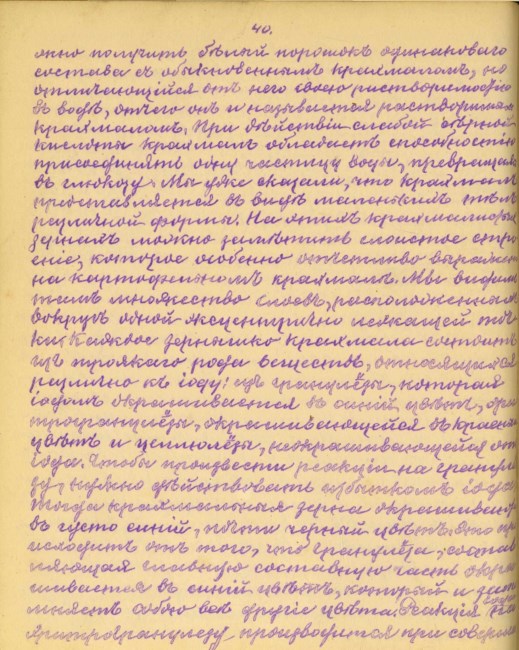 40.
жно получить бѣлый порошокъ одинаковаго
состава съ обыкновеннымъ крахмаломъ, но
отличающійся отъ него своею растворимостію
въ водѣ, отчего онъ и называется растворимымъ
крахмаломъ. При дѣйствіи слабой сѣрной
кислоты крахмалъ обладаетъ способностію
присоединять одну частицу воды, превращаясь
въ глюкозу. Мы уже сказали, что крахмалъ
представляется въ видѣ маленькихъ тѣлъ
различной формы. На этихъ крахмальныхъ
зернахъ можно замѣтить слоистое стро
еніе, которое особенно отчетливо выражено
на картофельномъ крахмалѣ. Мы видимъ
тамъ множество слоевъ, расположенныхъ
вокругъ одной эксцентрично лежащей точ
ки. Каждое зернышко крахмала состоитъ
изъ троякаго рода веществъ, относящихся
различно къ іоду: изъ гранулёзы, которая
іодомъ окрашивается въ синій цвѣтъ, эри
трогранулёзы, окрашивающейся въ красный
цвѣтъ и целлюлёзы, неокрашивающейся отъ
іода. Чтобы произвести реакціи на гранулё
зу, нужно дѣйствовать избыткомъ іода.
Тогда крахмальныя зерна окрашиваются
въ густо синій, почти черный цвѣтъ. Это про
исходитъ отъ того, что гранулёза, состав
ляющая главную составную часть окра
шивается въ синій цвѣтъ, который и
мняетъ собою всѣ другіе цвѣта. Реакція іода на
эритрогранулезу производится при соверше